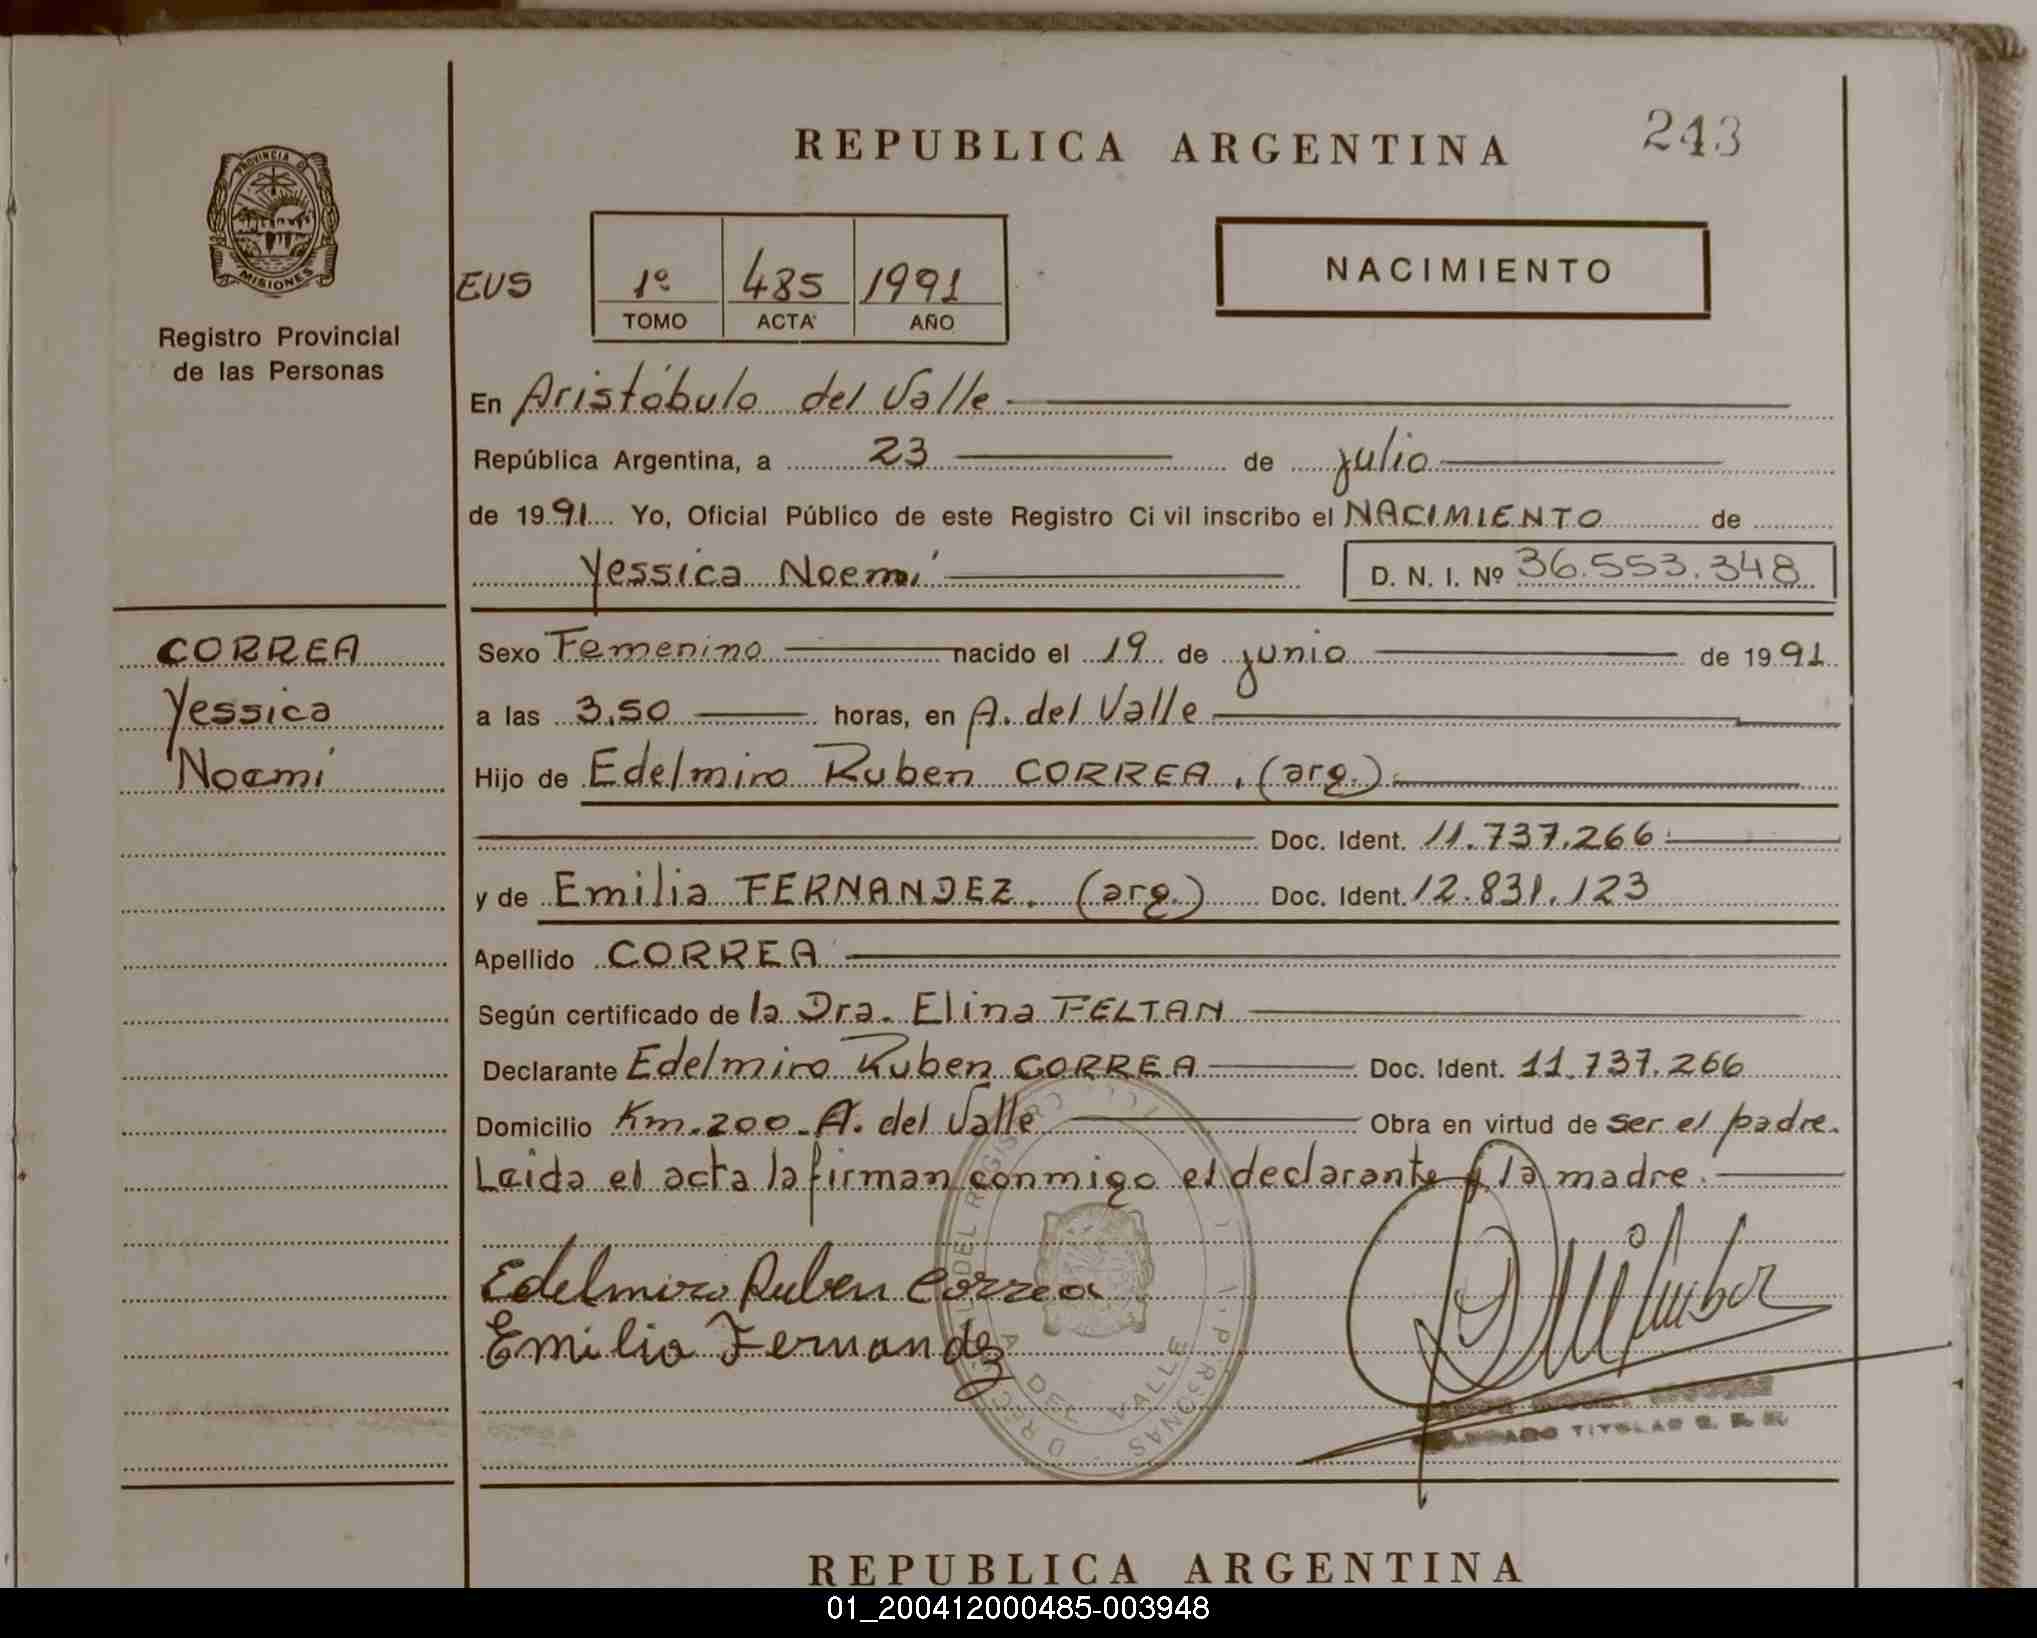 REPUBLICA ARGENTINA
243
PROVINCIA D
MISIONES
Registro Provincial
de las Personas
EUS
1º 485 1991
TOMO ACTA AÑO
NACIMIENTO
En Aristóbulo del Valle
República Argentina, a 23 de julio
de 1991 Yo, Oficial Público de este Registro Ci vil inscribo el NACIMIENTO de
Yessica Noemí D. N. I. Nº 36.553.348
CORREA
Yessica
Noemí
Sexo Femenino nacido el 19 de junio de 1991
a las 3,50 horas, en A. del Valle
Hijo de Edelmiro Ruben CORREA, (arg.)
Doc. Ident. 11.737.266
y de Emilia FERNANDEZ. (arg.) Doc. Ident. 12.831.123
Apellido CORREA
Según certificado de la Dra. Elina FELTAN
Declarante Edelmiro Ruben CORREA Doc. Ident. 11.737.266
Domicilio Km. 200 - A. del Valle Obra en virtud de ser el padre.
Leida el acta la firman conmigo el declarante y la madre.
Edelmiro Ruben Correa
Emilia Fernandez
DEL REGISTRO
PERSONAS
DEL VALLE
TITULAR
REPUBLICA ARGENTINA
01_200412000485-003948